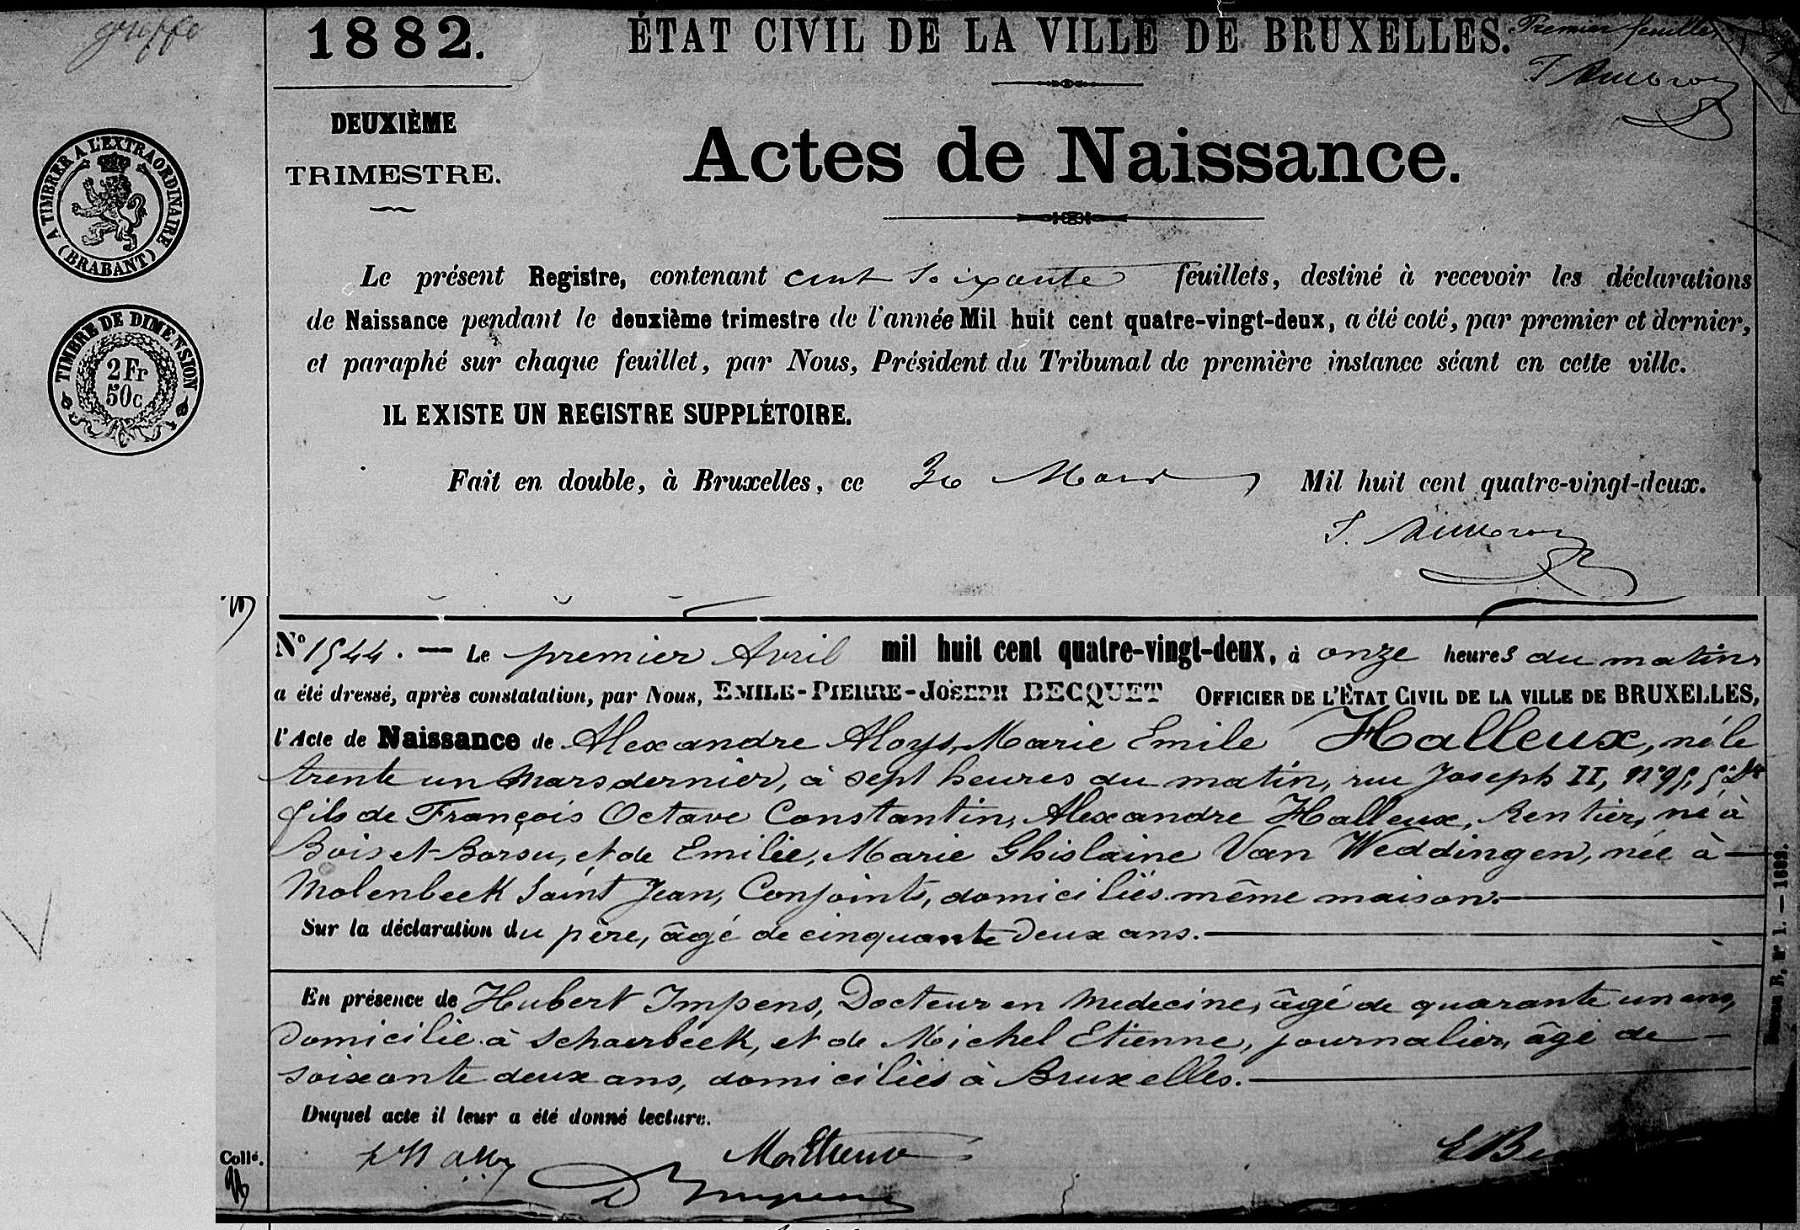 griffe
1882.
ÉTAT CIVIL DE LA VILLE DE BRUXELLES.
Premier feuillet
DEUXIÈME
TRIMESTRE.
Actes de Naissance.
A TIMBRER A L'EXTRAORDINAIRE
(BRABANT)
TIMBRE DE DIMENSION
2 Fr
50c
Le présent Registre, contenant cent soixante feuillets, destiné à recevoir les déclarations
de Naissance pendant le deuxième trimestre de l'année Mil huit cent quatre-vingt-deux, a été coté, par premier et dernier,
et paraphé sur chaque feuillet, par Nous, Président du Tribunal de première instance séant en cette ville.
IL EXISTE UN REGISTRE SUPPLÉTOIRE.
Fait en double, à Bruxelles, ce 30 Mars Mil huit cent quatre-vingt-deux.
N° 1544. — Le premier Avril mil huit cent quatre-vingt-deux, à onze heures du matin,
a été dressé, après constatation, par Nous, EMILE-PIERRE-JOSEPH BECQUET OFFICIER DE L'ÉTAT CIVIL DE LA VILLE DE BRUXELLES,
l'Acte de Naissance de Alexandre Aloys, Marie Emile Halleux, né le
trente un Mars dernier, à sept heures du matin, rue Joseph II, n° 95,
fils de François Octave Constantin, Alexandre Halleux, Rentier, né à
Bois et Borsu, et de Emilie, Marie Ghislaine Van Weddingen, née à —
Molenbeek Saint Jean, Conjoints, domiciliés même maison. —
Sur la déclaration du père, âgé de cinquante deux ans. —
En présence de Hubert Impens, Docteur en Medecine, âgé de quarante un ans,
domicilié à Schaerbeek, et de Michel Etienne, journalier, âgé de —
soixante deux ans, domiciliés à Bruxelles. —
Duquel acte il leur a été donné lecture.
Collé.
M. Etienne
D Impens